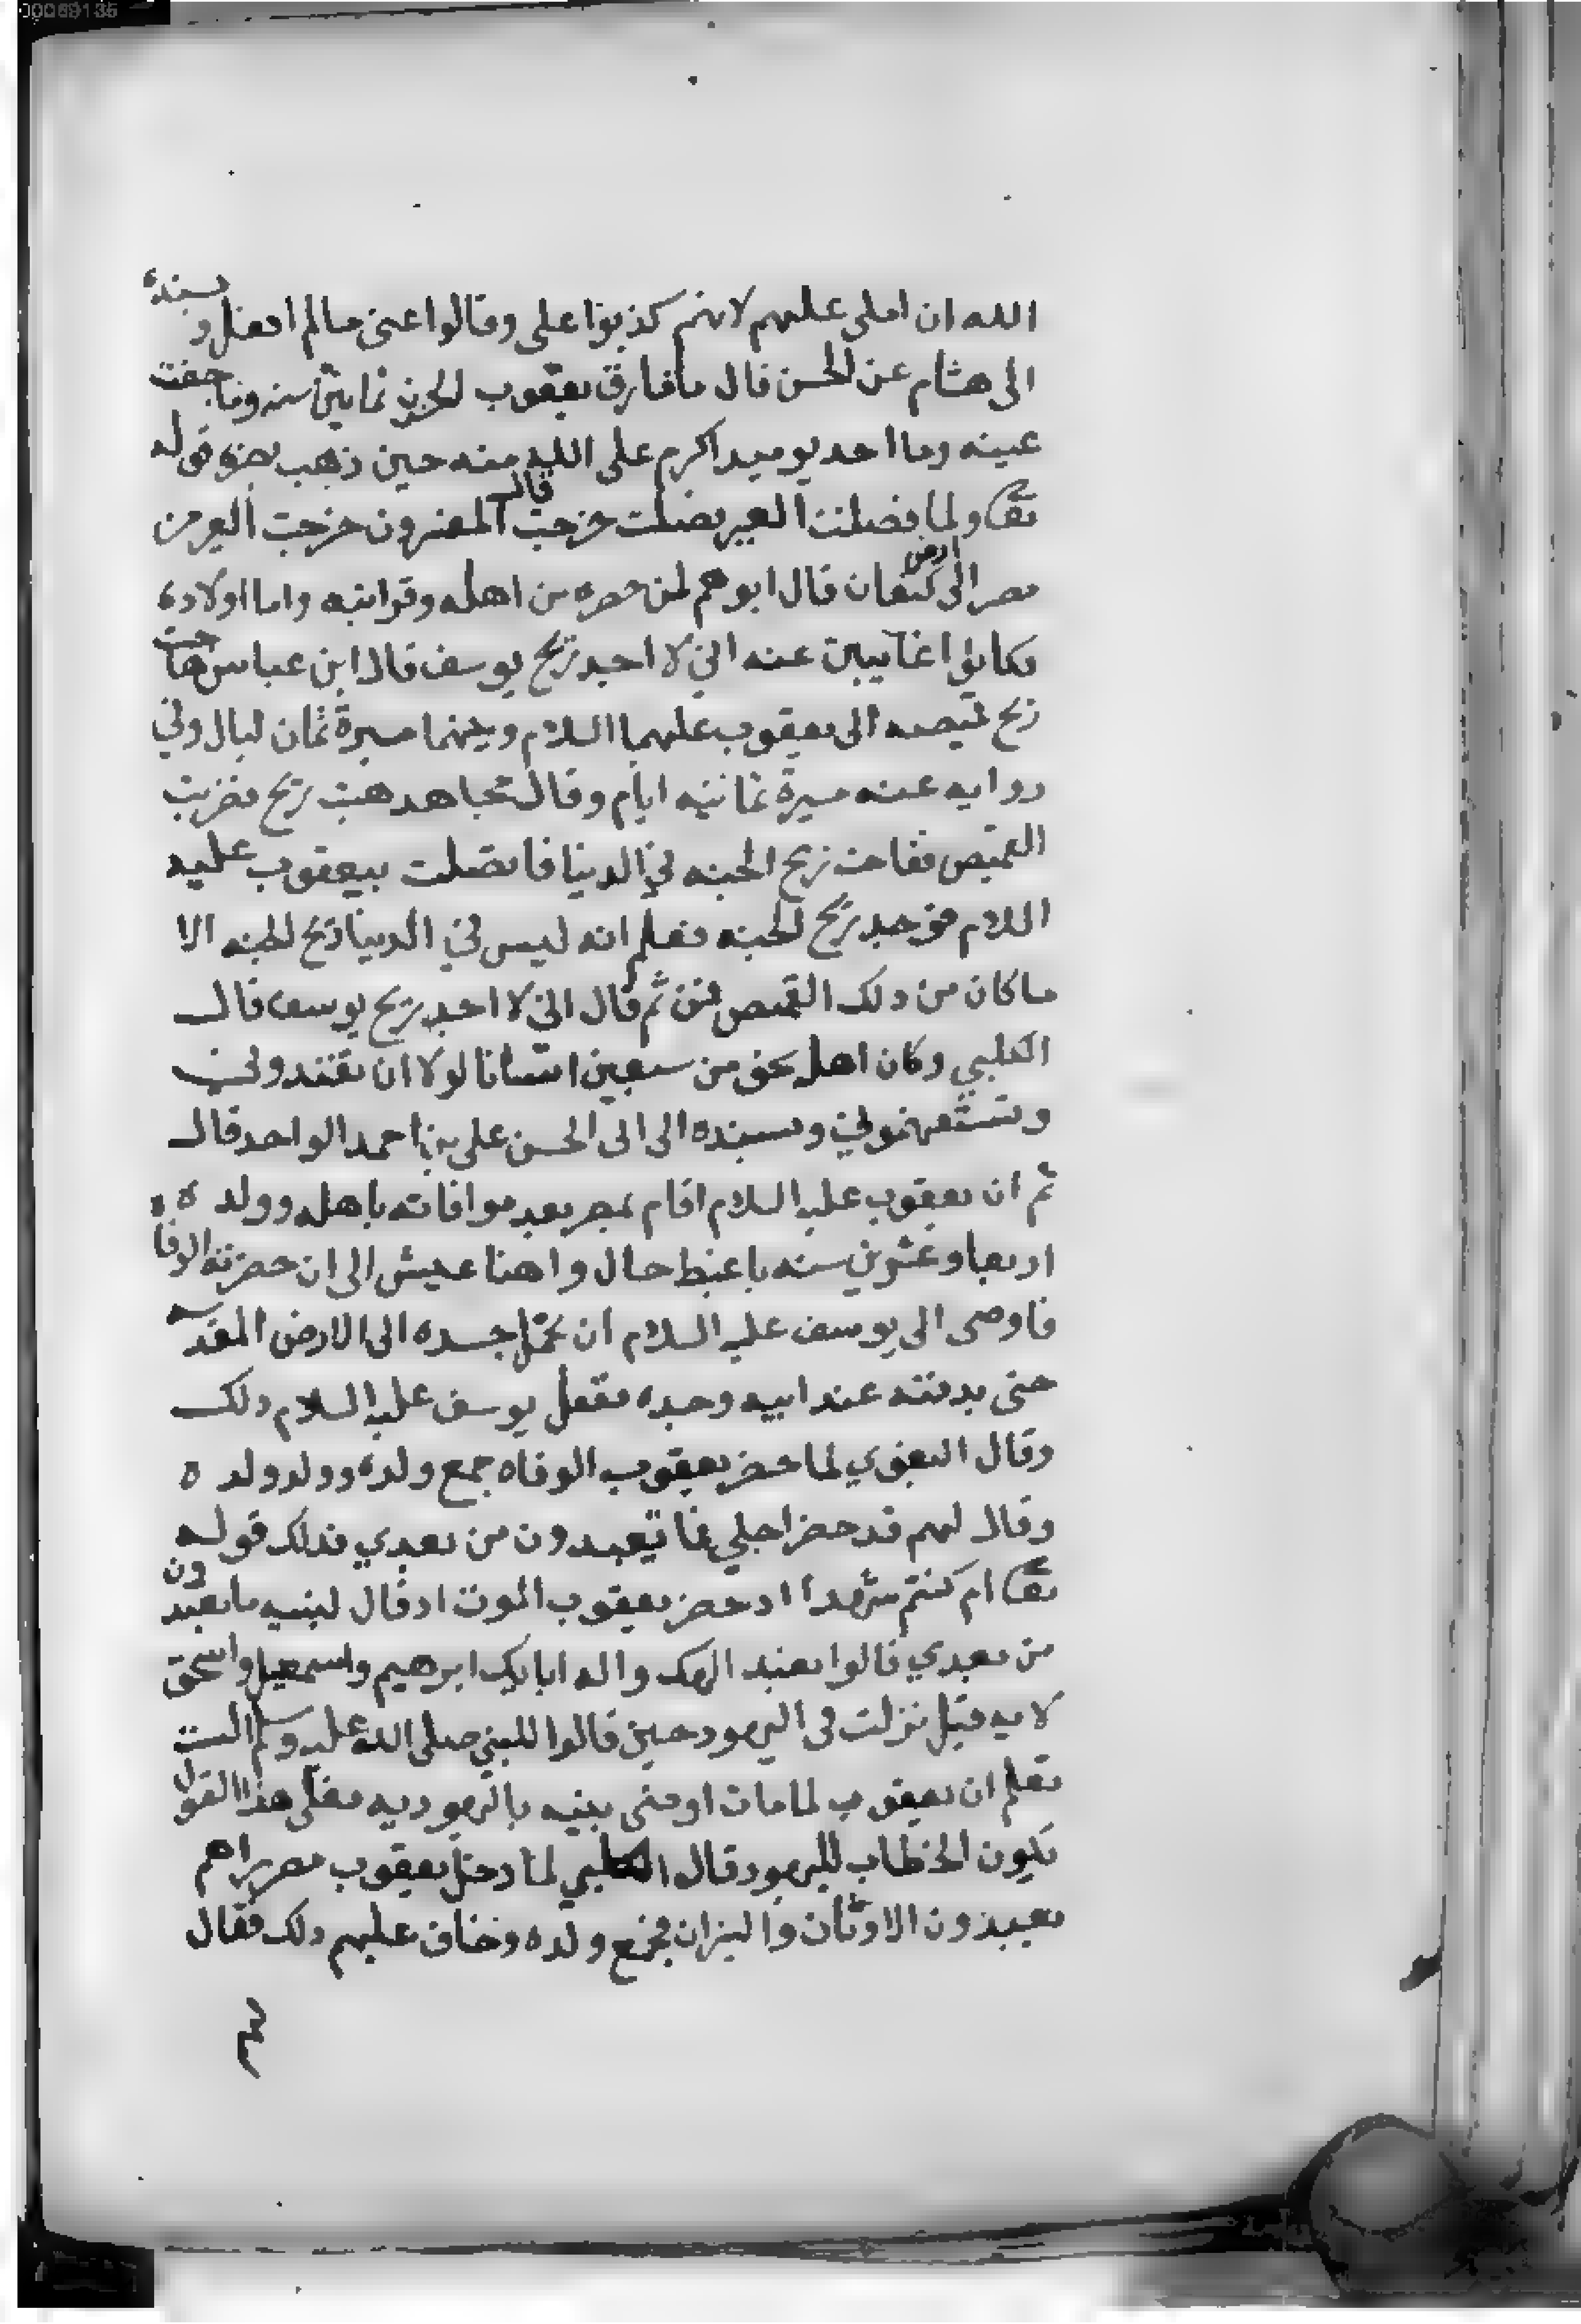 00069135
الله ان املى عليهم لانهم كذبوا على وقالوا عنى ما لم افعل وبسنده
الى هشام عن الحسن قال ما فارق يعقوب الحزن ثمانين سنه وما جفت
عينه وما احد يوميد اكرم على الله منه حين ذهب بصره قوله
تعالى ولما فصلت العير فصلت خرجت قال المفسرون خرجت العير من
مصر الى ارض كنعان قال ابوهم لمن حضره من اهله وقرابته واما اولاده
فكانوا غايبين عنه اني لاجد ريح يوسف قال ابن عباس هاجت
ريح قميصه الى يعقوب عليهما السلام وبينهما مسيرة ثمان ليال وفي
روايه عنه مسيرة ثمانيه ايام وقال مجاهد هبت ريح فضربت
القميص ففاحت ريح الجنه في الدنيا فاتصلت بيعقوب عليه
السلام فوجد ريح الجنه فعلم انه ليس في الدنيا ريح الجنه الا
ما كان من ذلك القميص فمن ثم قال اني لا اجد ريح يوسف قال
الكلبي وكان اهله نحو من سبعين انسانا لولا ان تفندوني
وبسنده الى ابى الحسن على بن احمد الواحد قال
ثم ان يعقوب عليه السلام اقام بمصر بعد موافاته باهله وولده
اربعا وعشرين سنه باغبط حال واهنا عيش الى ان حضرته الوفا
فاوصى الى يوسف عليه السلام ان يحمل جسده الى الارض المقدسه
حتى يدفنه عند ابيه وجده ففعل يوسف عليه السلام ذلك
وقال البغوي لما حضر يعقوب الوفاه جمع ولده وولد ولده
وقال لهم قد حضر اجلي فما تعبدون من بعدي فذلك قوله
تعالى ام كنتم شهدا اذ حضر يعقوب الموت اذ قال لبنيه ما تعبدون
من بعدي قالوا نعبد الهك واله ابايك ابرهيم واسمعيل واسحق
الايه قيل نزلت فى اليهود حين قالوا للنبي صلى الله عليه وسلم الست
تعلم ان يعقوب لما مات اوصى بنيه باليهوديه فعلى هذا القول
يكون الخطاب لليهود قال الكلبي لما دخل يعقوب مصر يراهم
يعبدون الاوثان والنيران فجمع ولده وخاف عليهم ذلك فقال